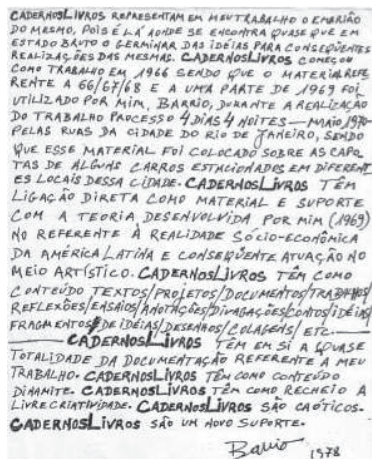 CADERNOSLIVROS REPRESENTAM EM MEU TRABALHO O EMBRIÃO
DO MESMO, POIS É LÁ AONDE SE ENCONTRA QUASE QUE EM
ESTADO BRUTO O GERMINAR DAS IDÉIAS PARA CONSEQÜENTES
REALIZAÇÕES DAS MESMAS. CADERNOSLIVROS COMEÇOU
COMO TRABALHO EM 1966 SENDO QUE O MATERIAL REFE
RENTE A 66/67/68 E A UMA PARTE DE 1969 FOI
UTILIZADO POR MIM, BARRIO, DURANTE A REALIZAÇÃO
DO TRABALHO PROCESSO 4 DIAS 4 NOITES — MAIO 1970 —
PELAS RUAS DA CIDADE DO RIO DE JANEIRO, SENDO
QUE ESSE MATERIAL FOI COLOCADO SOBRE AS CAPO
TAS DE ALGUNS CARROS ESTACIONADOS EM DIFERENT
ES LOCAIS DESSA CIDADE. CADERNOSLIVROS TÊM
LIGAÇÃO DIRETA COMO MATERIAL E SUPORTE
COM A TEORIA DESENVOLVIDA POR MIM (1969)
NO REFERENTE À REALIDADE SÓCIO-ECONÔMICA
DA AMÉRICA LATINA E CONSEQÜENTE ATUAÇÃO NO
MEIO ARTÍSTICO. CADERNOSLIVROS TÊM COMO
CONTEÚDO TEXTOS/PROJETOS/DOCUMENTOS/TRABALHOS/
REFLEXÕES/ENSAIOS/ANOTAÇÕES/DIVAGAÇÕES/CONTOS/IDÉIAS/
FRAGMENTOS DE IDÉIAS/DESENHOS/COLAGENS/ETC. —
— CADERNOSLIVROS TÊM EM SI A QUASE
TOTALIDADE DA DOCUMENTAÇÃO REFERENTE A MEU
TRABALHO. CADERNOSLIVROS TÊM COMO CONTEÚDO
DINAMITE. CADERNOSLIVROS TÊM COMO RECHEIO A
LIVRE CRIATIVIDADE. CADERNOSLIVROS SÃO CAÓTICOS.
CADERNOSLIVROS SÃO UM NOVO SUPORTE.
Barrio 1978